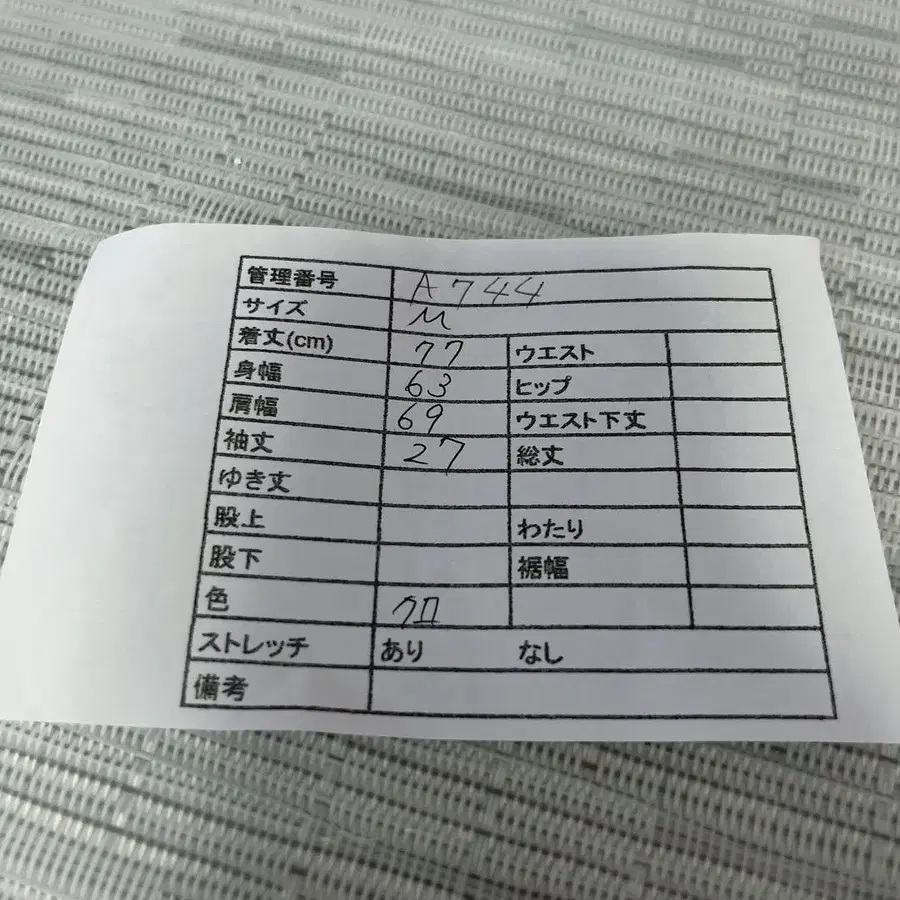 管理番号 A744
サイズ M
着丈(cm) 77 ウエスト
身幅 63 ヒップ
肩幅 69 ウエスト下丈
袖丈 27 総丈
ゆき丈
股上 わたり
股下 裾幅
色 クロ
ストレッチ あり なし
備考